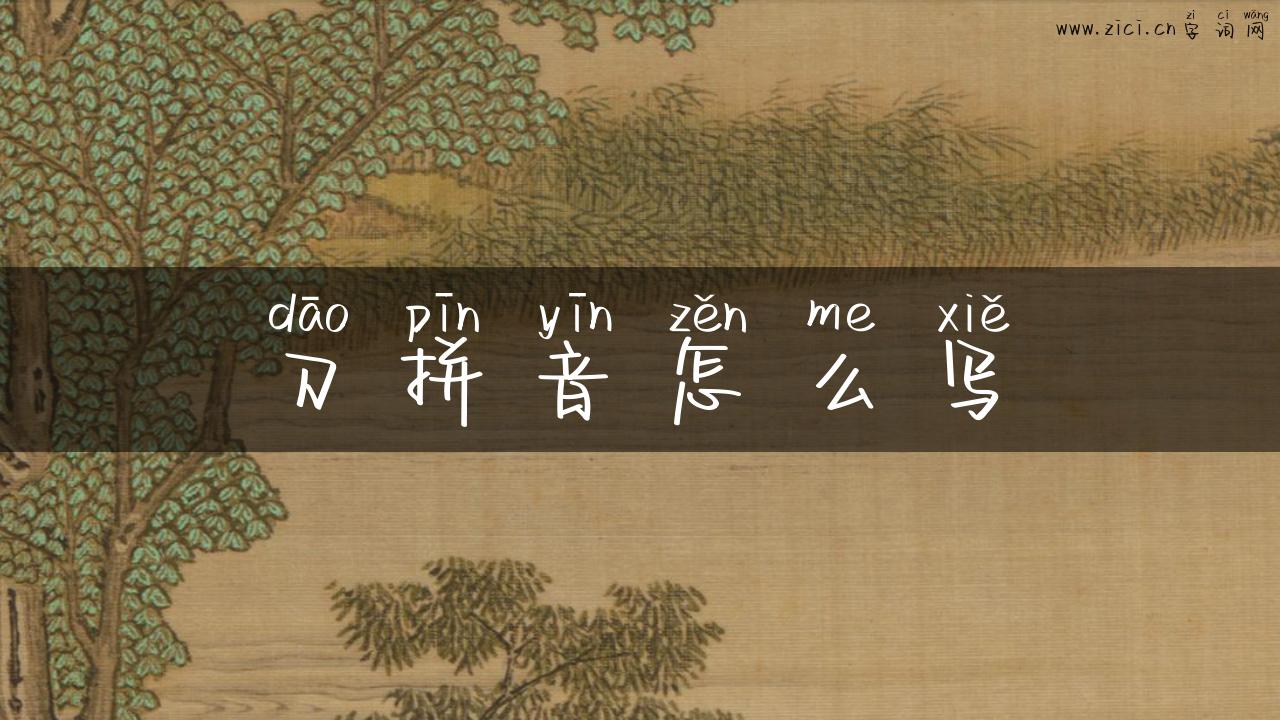 zì cí wǎng
www.zici.cn字词网
dāo pīn yīn zěn me xiě
刀拼音怎么写